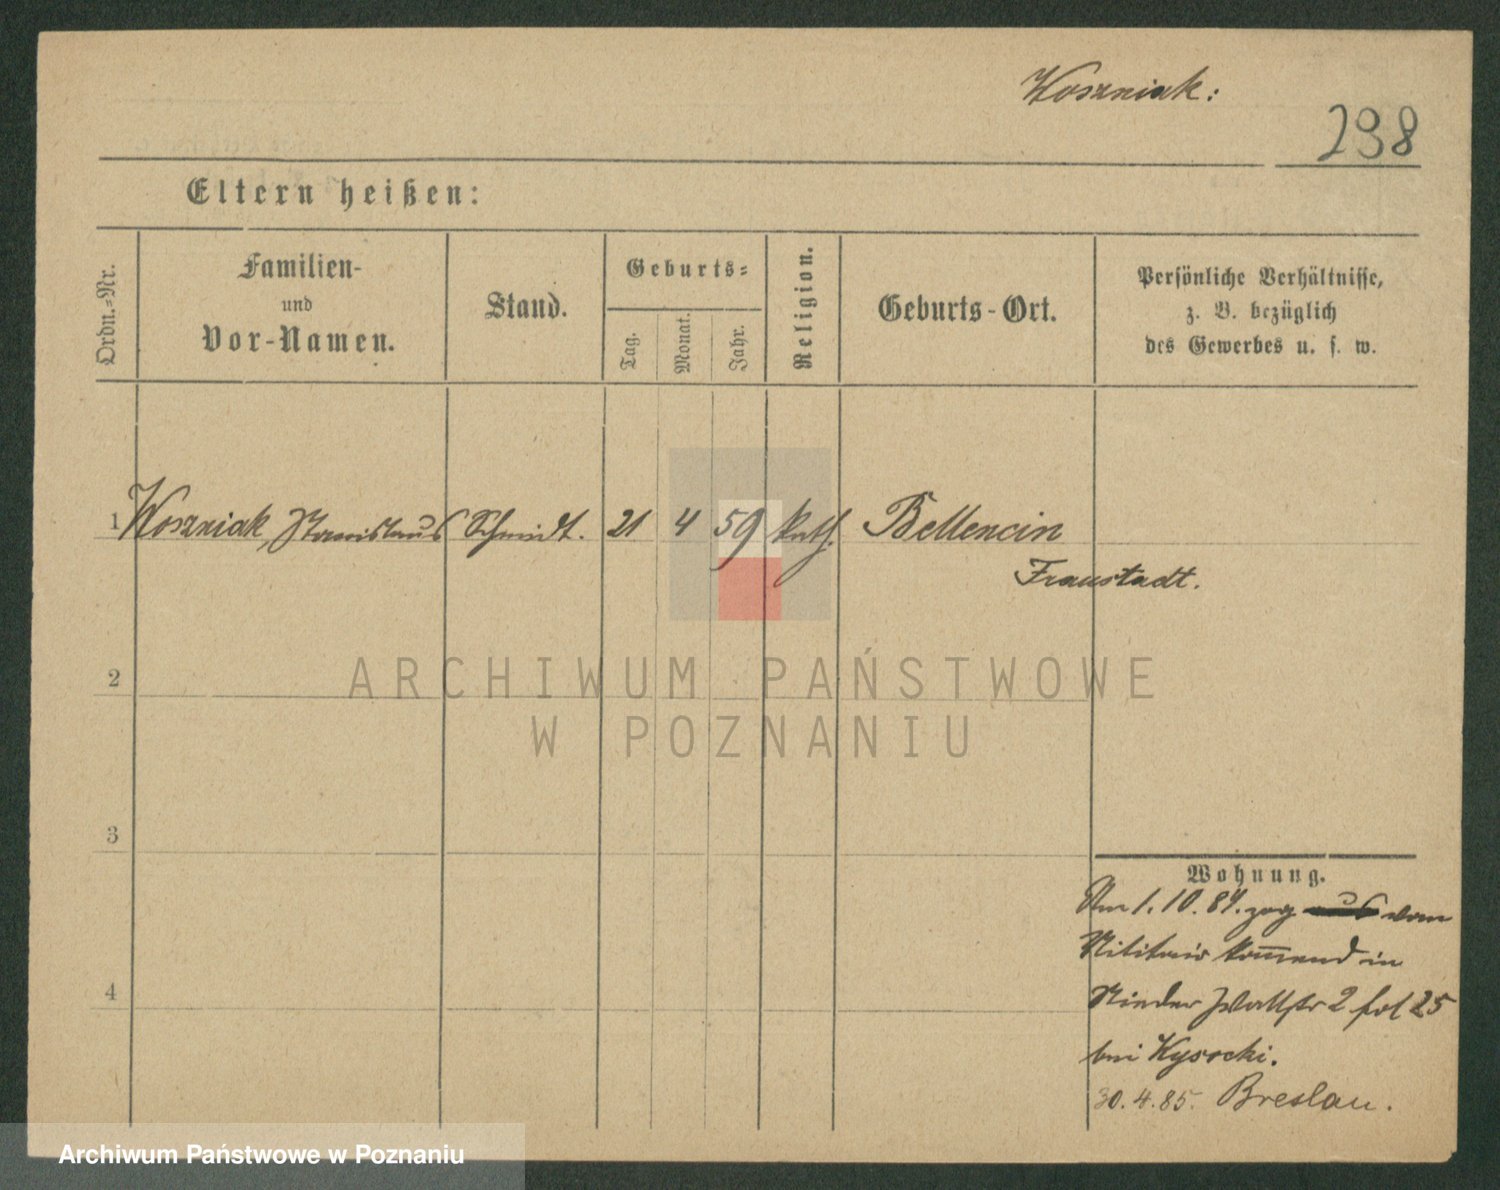 Woszniak:
238
Eltern heißen:
Ordn.-Nr.
Familien-
und
Vor-Namen.
Stand.
Geburts-
Tag.
Monat.
Jahr.
Religion.
Geburts-Ort.
Persönliche Verhältnisse,
z. B. bezüglich
des Gewerbes u. s. w.
1 Woszniak, Stanislaus Schmidt. 21 4 59 kath. Bellencin
Fraustadt.
ARCHIWUM PAŃSTWOWE
W POZNANIU
2
3
4
Wohnung.
Am 1.10.84. zog aus vom
Militair kommend in
Nieder Wallstr 2 fol 25
bei Wysocki.
30.4.85. Breslau.
Archiwum Państwowe w Poznaniu